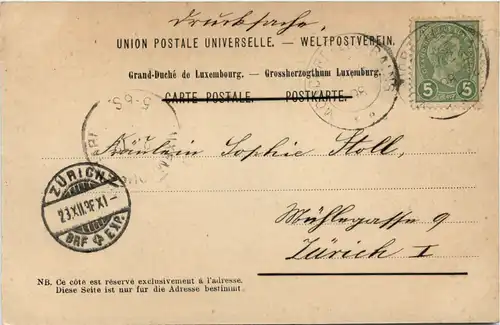 Drucksache.
UNION POSTALE UNIVERSELLE. — WELTPOSTVEREIN.
Grand-Duché de Luxembourg. — Grossherzogthum Luxemburg.
CARTE POSTALE. POSTKARTE.
5 5
5-6S.
Fräulein Sophie Stoll,
ZÜRICH
23.XII.9 XI-
BRF EXP.
Mühlegasse 9
Zürich I
NB. Ce côté est réservé exclusivement à l'adresse.
Diese Seite ist nur für die Adresse bestimmt.